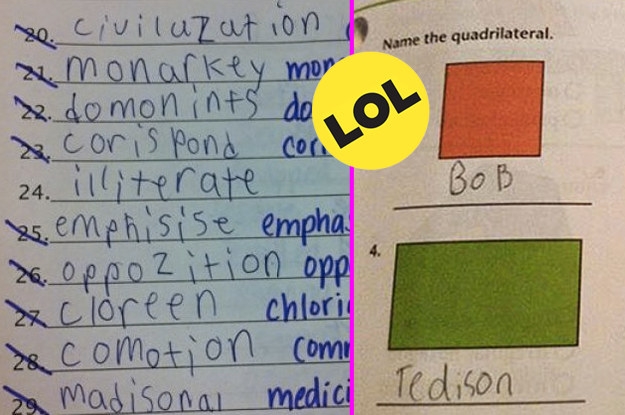 20. civiluzation
21. monarkey mon
22. domonints do
23. corispond cor
24. illiterate
25. emphisise empha
26. oppozition opp
27. cloreen chlori
28. comotion comm
29. madisonal medici
LOL
Name the quadrilateral.
BoB
4.
Tedison